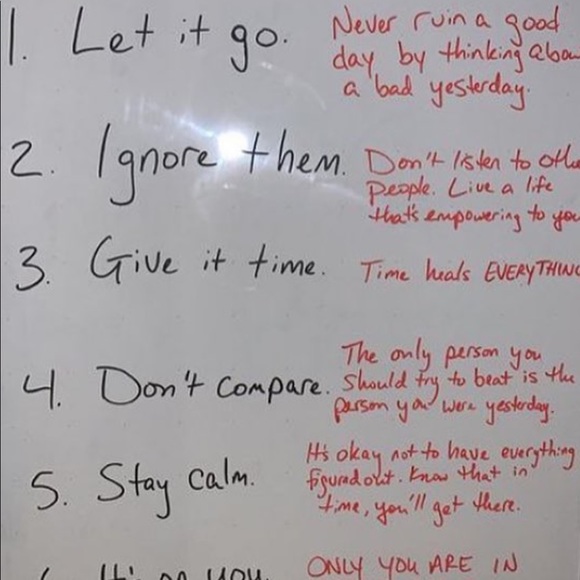 1. Let it go.
Never ruin a good
day by thinking
a bad yesterday.
2. Ignore them.
Don't listen to
people. Live a life
that's empowering to you
3. Give it time.
Time heals EVERYTHING
4. Don't compare.
The only person you
Should try to beat is the
person you were yesterday.
5. Stay calm.
It's okay not to have everything
figured out. Know that in
time, you'll get there.
It's on you.
ONLY YOU ARE IN